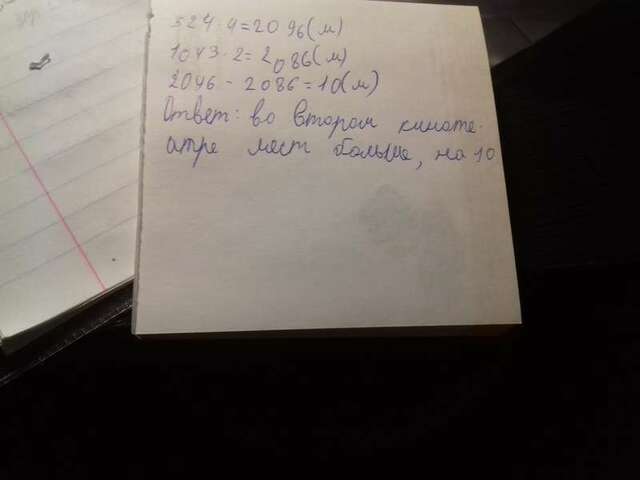 524·4=2096(м)
1043·2=2086(м)
2096-2086=10(м)
Ответ: во втором киноте-
атре мест больше, на 10